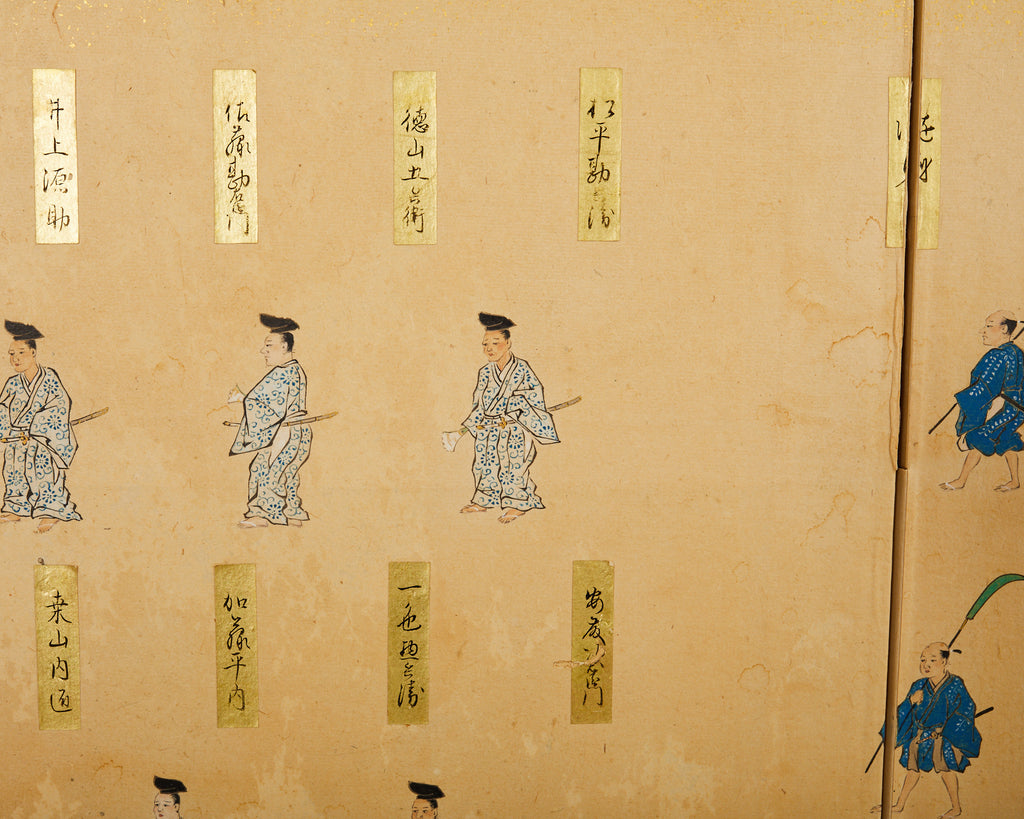 松平勘兵衛
徳山五兵衛
佐藤勘右衛門
井上源助
安藤
一色惣兵衛
加藤平内
桑山内匠